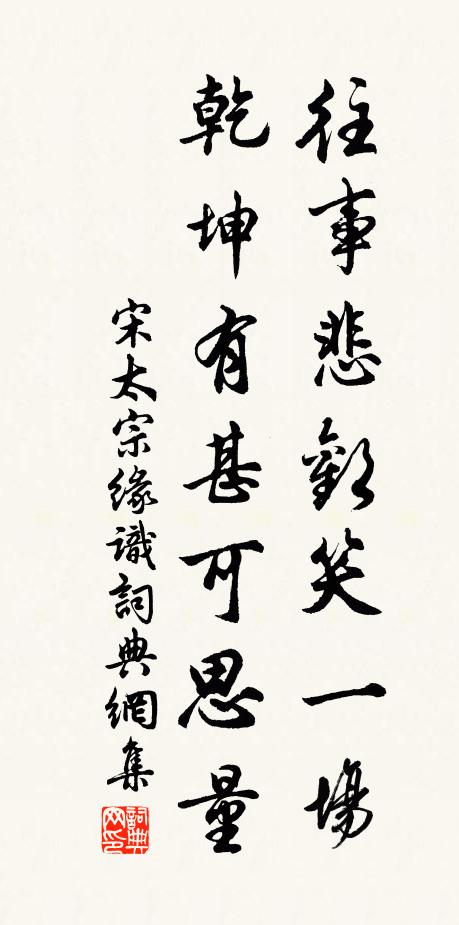 往事悲歡笑一場
乾坤有甚可思量
宋太宗緣識詞典網集
詞典网印